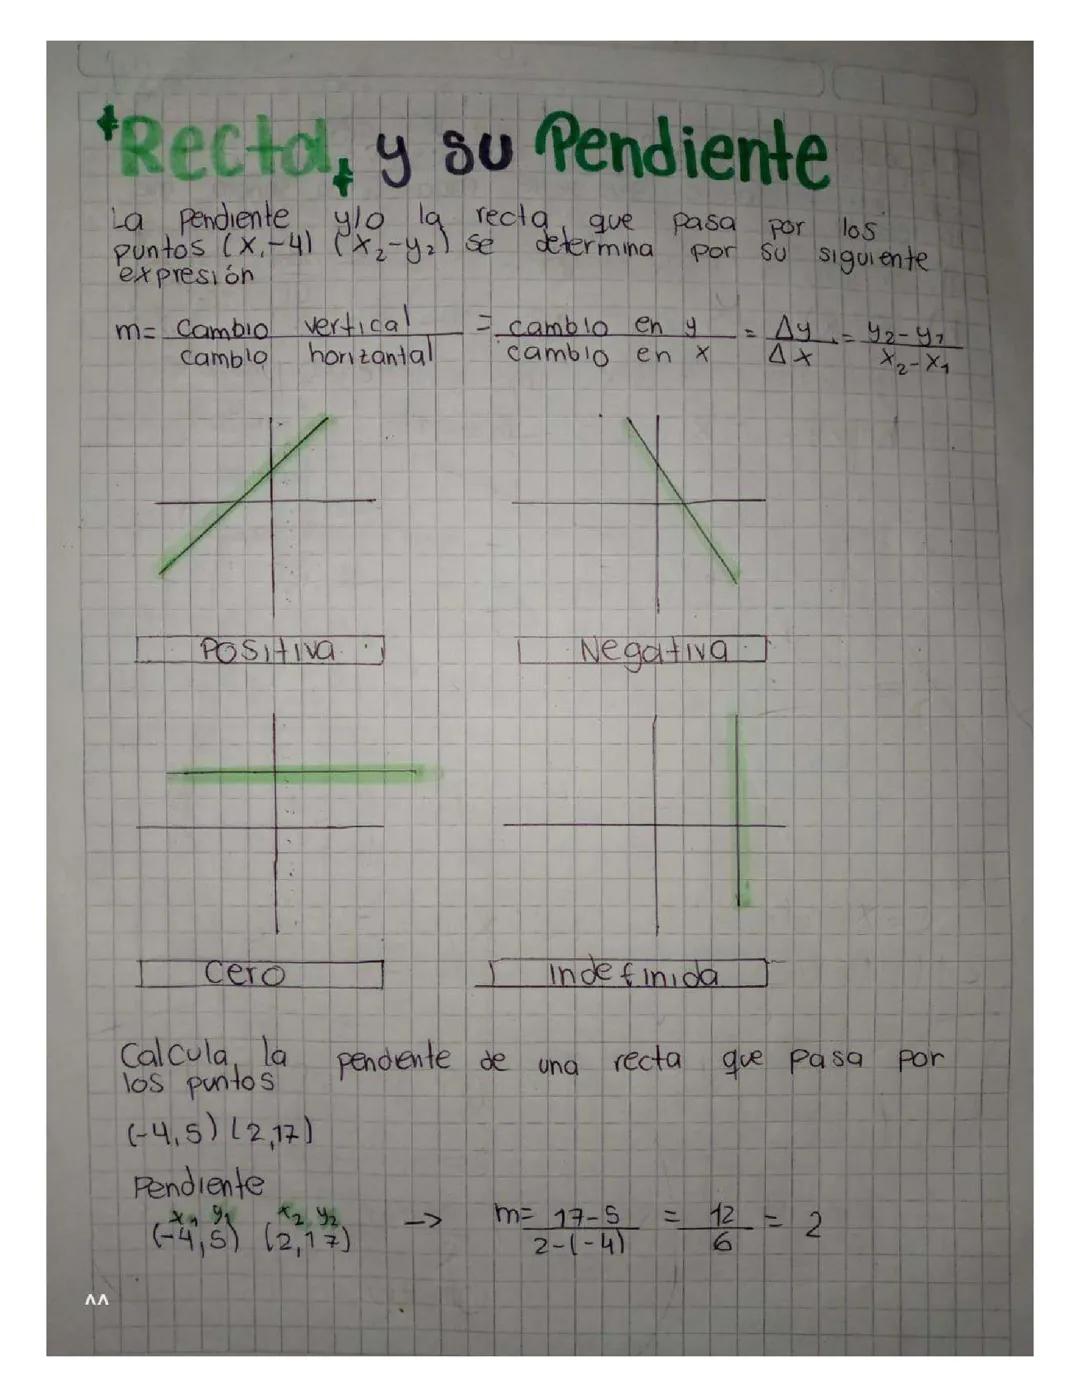 Recta y su Pendiente
La pendiente y/o la recta que pasa por los
puntos (x,-4) (x₂-y₂) se determina por su siguiente
expresión
m= Cambio vertical / cambio horizantal = cambio en y / cambio en x = Δy / Δx = y₂-y₁ / x₂-x₁
Positiva
Negativa
Cero
Indefinida
Calcula la pendiente de una recta que pasa por
los puntos
(-4,5) (2,17)
Pendiente
x₁ y₁ x₂ y₂
(-4,5) (2,17) -> m= 17-5 / 2-(-4) = 12 / 6 = 2
^^